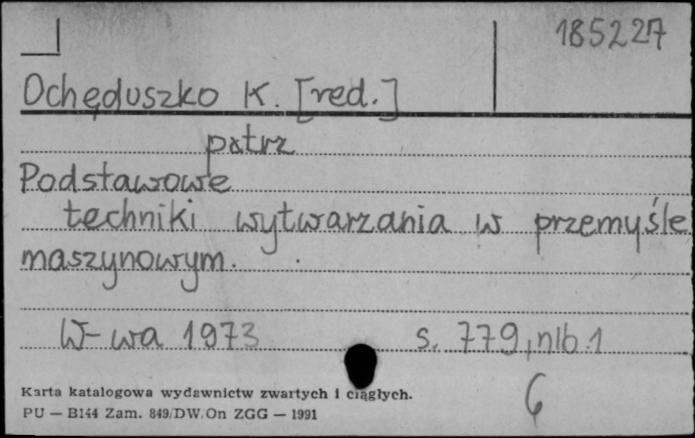 185227
Ochęduszko K. [red.]
patrz
Podstawowe
techniki wytwarzania w przemyśle
maszynowym.
W-wa 1973 s. 779, nlb. 1
Karta katalogowa wydawnictw zwartych i ciągłych.
PU — B144 Zam. 849/DW/On ZGG — 1991
6